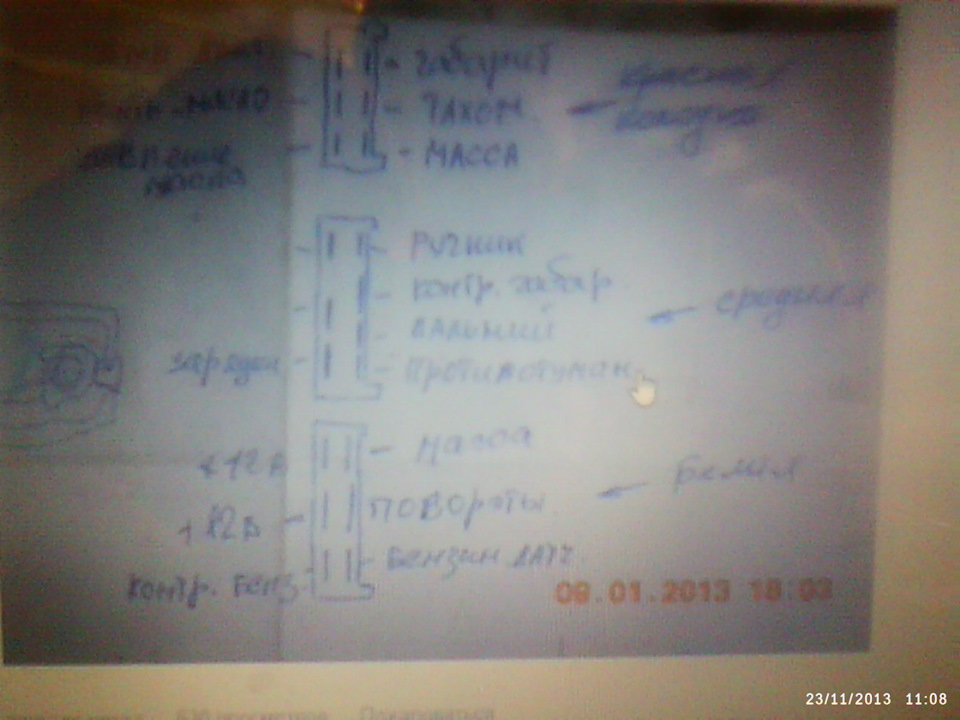 габарит
ТАХОМ.
МАССА
красная
колодка
давление
масла
РУЧНИК
контр. габар.
ДАЛЬНИЙ
Противотуман.
средняя
зарядки
Масса
+12 В
ПОВОРОТЫ
белая
+12В
Бензин ДАТЧ.
контр. БЕНЗ
09.01.2013 18:03
Пожаловаться
23/11/2013 11:08